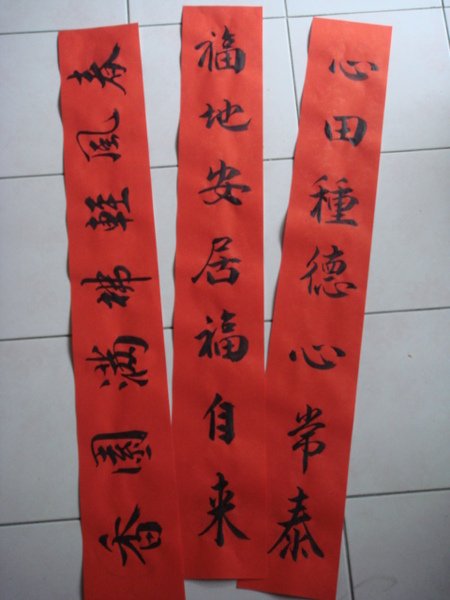 心田種德心常泰
福地安居福自来
春風輕拂滿園香